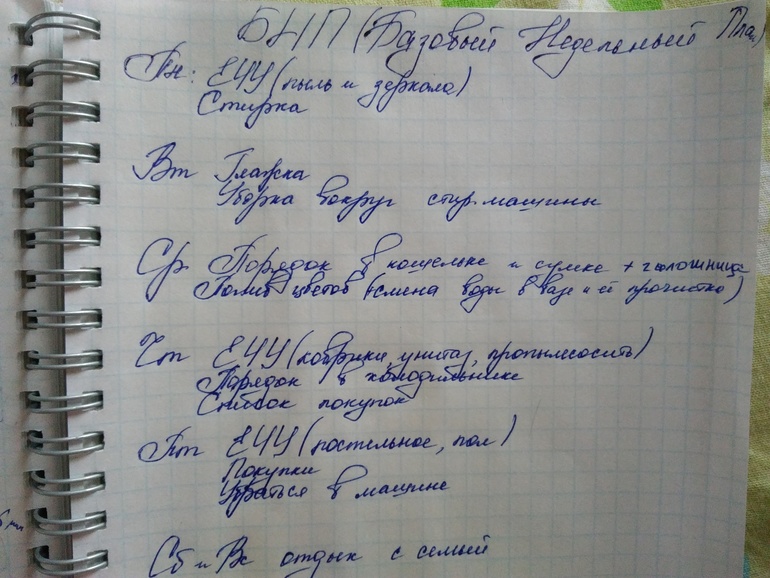 БНП (Базовый Недельный План)
Пн: ЕЧУ (пыль и зеркала)
Стирка
Вт Глажка
Уборка вокруг стир. машины
Ср Порядок в кошельке и сумке +
Полив цветов (+смена воды в вазе и её прочистка)
Чт ЕЧУ (коврики, унитаз, пропылесосить)
Порядок в холодильнике
Список покупок
Пт ЕЧУ (постельное, пол)
Покупки
Убраться в машине
Сб и Вс отдых с семьёй